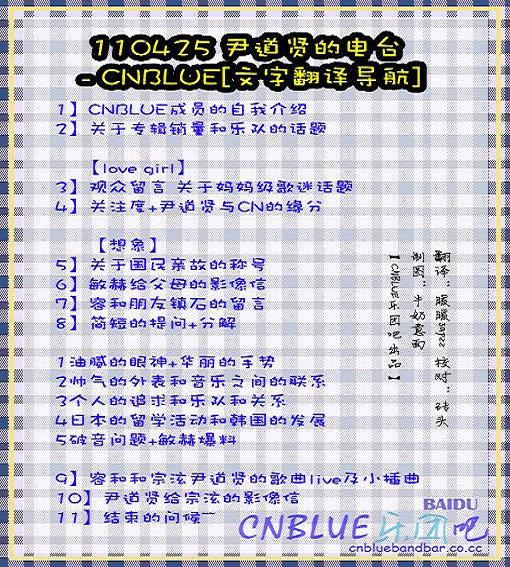 110425 尹道贤的电台
- CNBLUE[文字翻译导航]
1】CNBLUE成员的自我介绍
2】关于专辑销量和乐队的话题
【love girl】
3】观众留言 关于妈妈级歌迷话题
4】关注度+尹道贤与CN的缘分
【想象】
5】关于国民亲故的称号
6】敏赫给父母的影像信
7】容和朋友镇石的留言
8】简短的提问+分解
1油腻的眼神+华丽的手势
2帅气的外表和音乐之间的联系
3个人的追求和乐队和关系
4日本的留学活动和韩国的发展
5破音问题+敏赫爆料
9】容和和宗泫尹道贤的歌曲live及小插曲
10】尹道贤给宗泫的影像信
11】结束的问候~~
翻译：暖暖 校对：砖头
制图：牛奶煮面
【CNBLUE乐团吧出品】
BAIDU
CNBLUE乐团吧
cnbluebandbar.co.cc